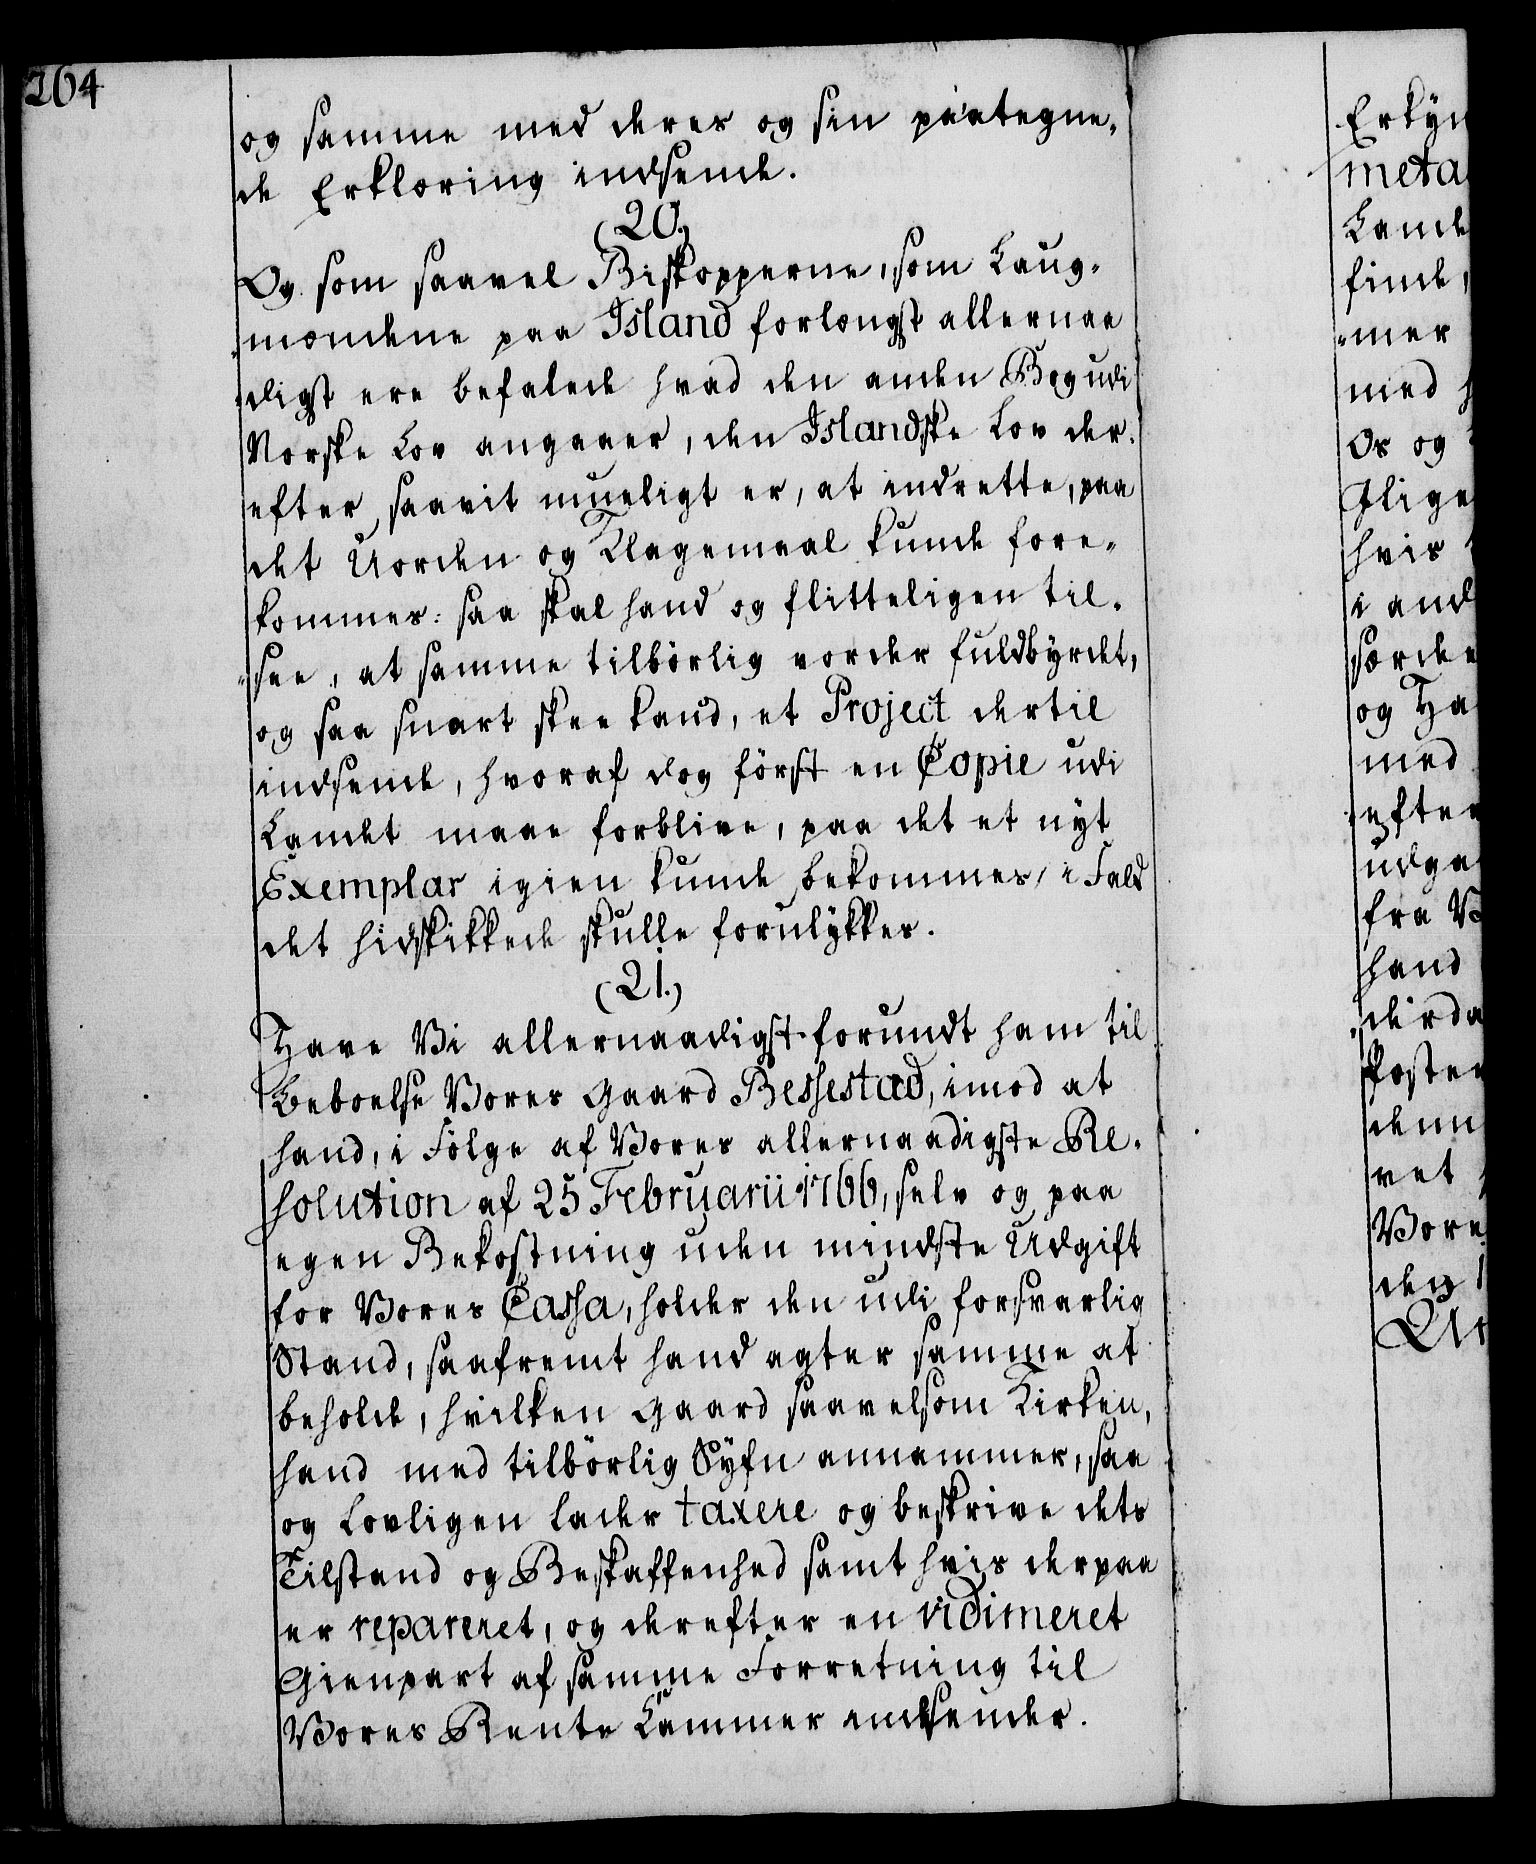 264
og samme med deres og sin paategne„
de Erklæring indsende.
(20.)
Og som saavel Biskopperne, som Laug„
„mændene paa Island forlængst allernaa
„digst ere befalede hvad den anden Bog udi
Norske Lov angaaer, den Islandske Lov der„
efter, saavit mueligt er, at indrette, paa
det Uorden og Klagemaal kunde fore„
kommes: saa skal hand og flitteligen til„
„see, at samme tilbørlig vorder fuldbyrdet,
og saa snart skee kand, et Project dertil
indsende, hvoraf dog först en Copie udi
Landet maae forblive, paa det et nyt
Exemplar igien kunde bekommes, i Fald
det hidskikkede skulle forulykkes.
(21.)
Have Vi allernaadigst forundt ham til
Beboelse Vores Gaard Bessestad, imod at
hand, i Fölge af Vores allernaadigste Re„
solution af 25 Februarii 1766, selv og paa
egen Bekostning uden mindste Udgift
for Vores Cassa, holder den udi forsvarlig
Stand, saafremt hand agter samme at
beholde, hvilken Gaard saavelsom Kirken,
hand med tilbörlig Syfn annammer, saa
og Lovligen lader taxere og beskrive dets
Tilstand og Beskaffenhed samt hvis derpaa
er repareret, og derefter en vidimeret
Gienpart af samme Forretning til
Vores Rente Cammer indsender.
Erkyn
meta
Lande
finde,
„mer
med
Os og
Ilige
hvis
i and
særde
og Ha
med
efter
udga
fra V
hand
„derda
Poster
denn
vet
Vore
den